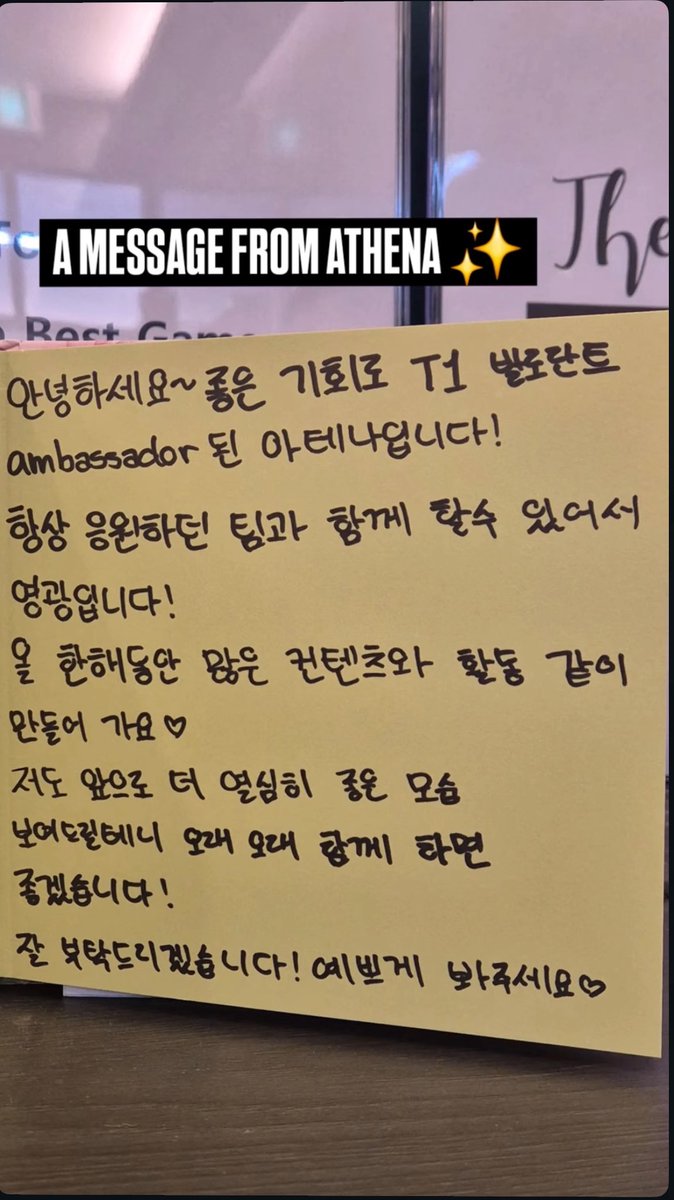 The
A MESSAGE FROM ATHENA ✨
Best Game
안녕하세요~ 좋은 기회로 T1 발로란트
ambassador 된 아테나입니다!
항상 응원하던 팀과 함께 할수 있어서
영광입니다!
올 한해동안 많은 컨텐츠와 활동 같이
만들어 가요♡
저도 앞으로 더 열심히 좋은 모습
보여드릴테니 오래 오래 함께 하면
좋겠습니다!
잘 부탁드리겠습니다! 예쁘게 봐주세요♡